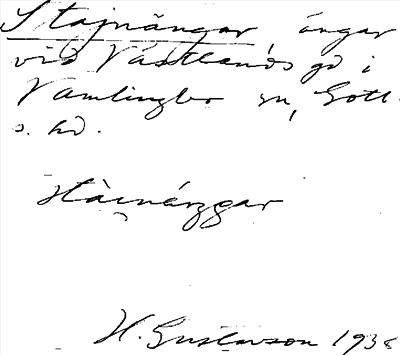 Stajnängar ängar
vid Västlands gd i
Vamlingbo sn, Gotl.
s. hd.
H. Gustavson 1938